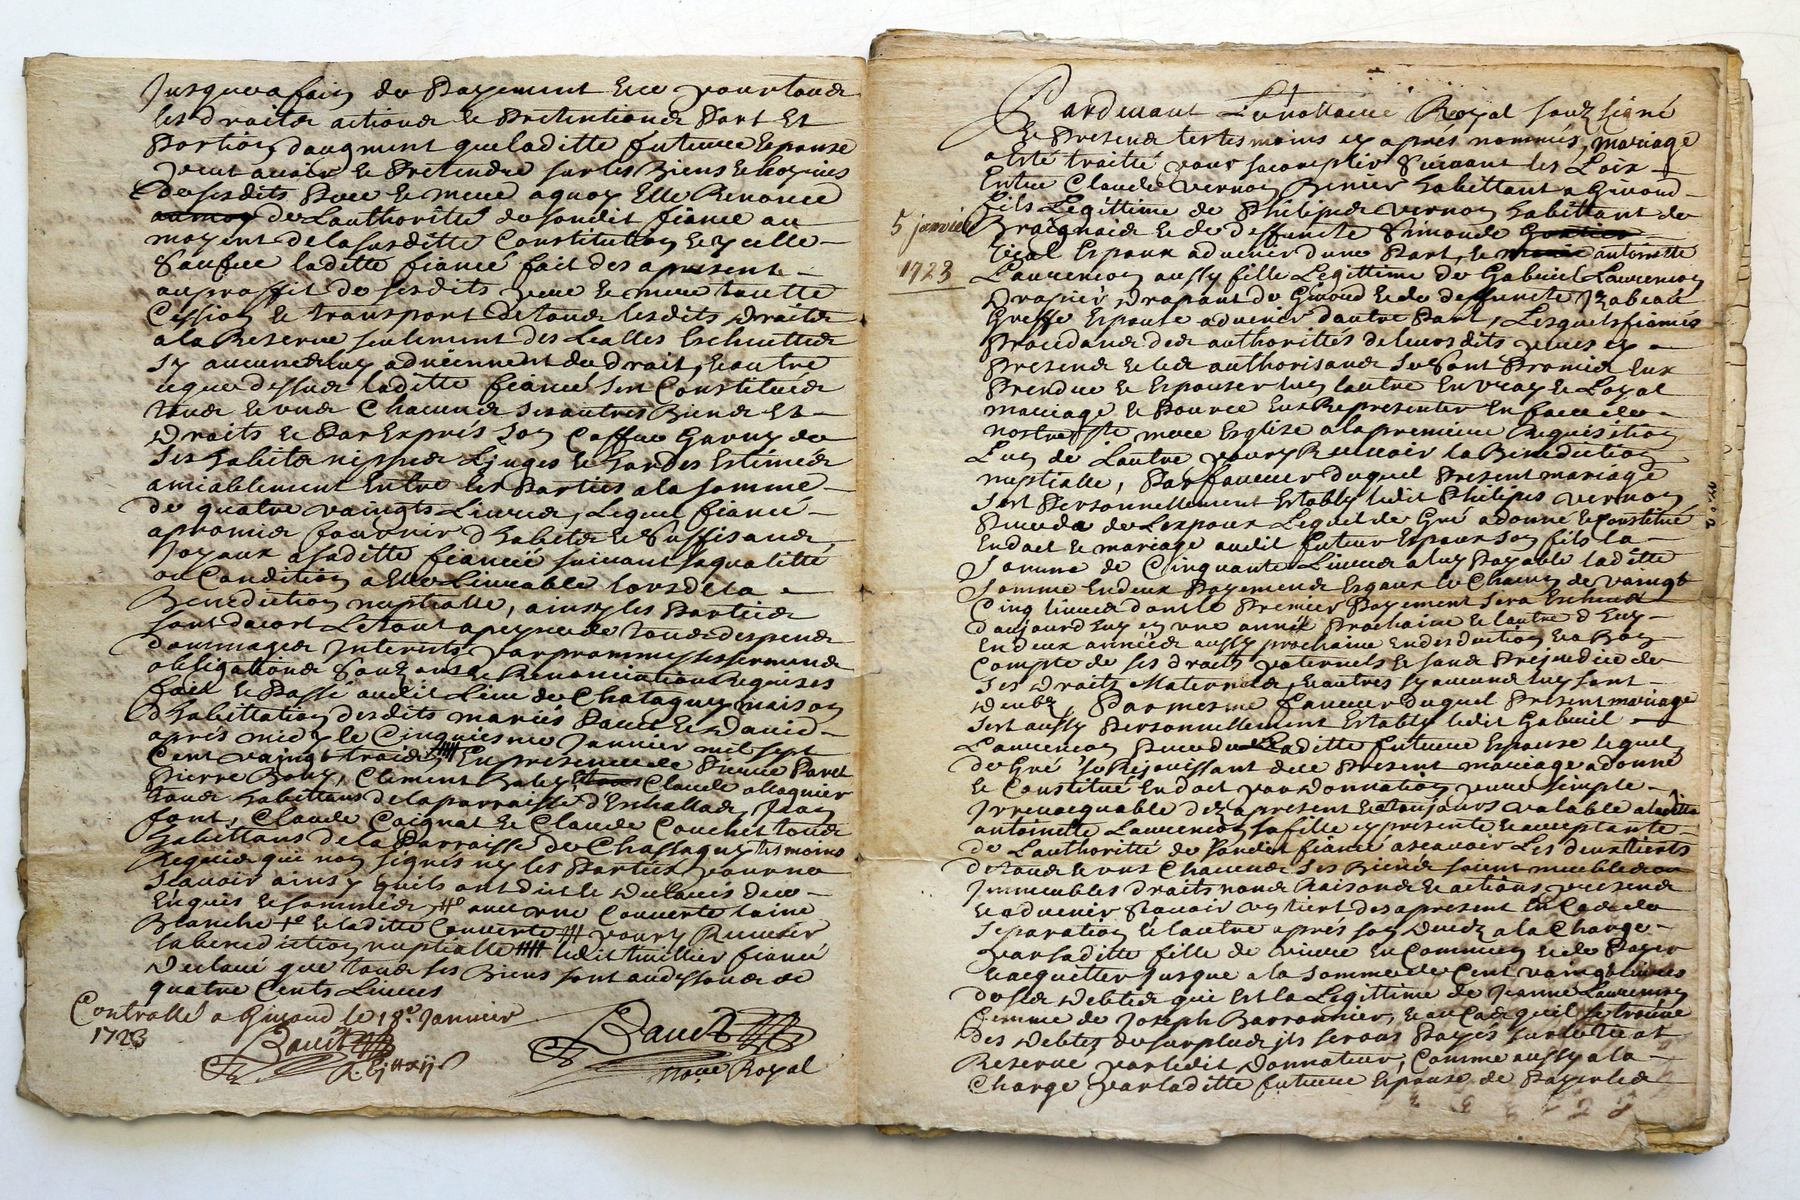 Jusques a fain du Payement Et ce pour tous
les droits actions & Pretentions Part Et
Portion d'augment que laditte future Epouse
peut avoir & Pretendre sur les Biens & hoyries
de sesdits Pere & mere a quoy Elle Renonce
de L'authorité du sondit fiancé au
moyent de la susditte Constitution & ycelle
laditte fiancé fait des a present
au proffit de sesdits pere & mere toutte
Cession & transport de tous lesdits droits
a la Reserve seulement des Escheuttes
Sy aucunes luy adviennent du droit, & outre
ce que dessus laditte fiancé s'est Constituée
tous & uns Chacuns ses autres Biens Et
Droits & Par Exprés son Coffre Garny de
ses habits nippes Linges & hardes Estimés
amiablement Entre les Parties a la somme
de quatre vaingts Livres, Lequel fiancé
a promis fournir d'habits & Suffisans
Joyaux a saditte fiancée suivant sa qualitté
ou Condition a Elle Livrable lors de la
Benediction nuptialle, ainsy les Parties
sont d'acort Le tout a peyne de tous despens
dommages Interests par promesses serments
obligations Soub & Renonciations Requises
fait & Passé audit Lieu de Chatagny maison
d'habittation desdits mariés Pavet & David
aprés midy le Cinquiesme Janvier mil sept
Cent vaingt trois, En presence de Pierre Pavet
Pierre Clement Claude allagnier
tous habittans de la parroisse d'Eschallas, Jean
font, Claude Coignat & Claude Couchet tous
habittans de la Parroisse de Chassagny tesmoins
Requis qui non signés ny les Parties pour ne
Scavoir ainsy qu'ils ont dit & Declarés de ce
Enquis & sommés, avec une Couverte laine
Blanche & laditte Couverte pour Recevoir
la benediction nuptialle ledit fiancé
Declaré que tous ses Biens sont au dessous de
quatre Cents Livres
Controllé a Givord le 18e Janvier
1723
Bauct
Bauct
nore Royal
Pardevant Le nottaire Royal soub signé
& Presens les tesmoins cy aprés nommés, mariage
a Esté traitté pour s'accomplir Suivant les Loix
Entre Claude Vernon habittant a Givord
fils Legittime de Philippes Vernon habittant de
Brignais & de deffuncte Simonde
Espoux advenir d'une Part, & antoinette
5 janvier
1723
Laurencon aussy fille Legittime de Gabriel Laurencon
Drapier drapant de Givord & de deffuncte Izabeau
Greffe Espouse advenir d'autre Part, Lesquels fiancés
Procedans des authorités de leursdits peres cy
Presens & les authorisans se sont Promis Eux
Prendre & Espouser l'un l'autre En vray & Loyal
mariage & Pource Eux Representer En face de
nostre Ste mere Esglise a la premiere Requisition
L'un de Lautre pour y Recevoir la Benediction
nuptialle, Par faveur duquel Present mariage
s'est Personnellement Estably ledit Philipes Vernon
Pere de L'espoux Lequel de Gré a donné & Constitué
En dot & mariage audit futeur Espoux son fils la
Somme de Cinquante Livres a luy Payable laditte
Somme En deux Payemens Esgaux & Chacun de vaingt
Cinq livres dont le Premier Payement sera Escheut
d'aujourd'huy en une année Prochaine & l'autre d'huy
En deux années aussy prochaine En deduction & a Bon
Compte de ses droits paternels & sans Prejudice de
Ses Droits Maternels & autres sy aucuns luy sont
deubz, Par mesme faveur duquel Present mariage
s'est aussy Personnellement Estably ledit Gabriel
Laurencon Pere de Laditte future Espouse lequel
de Gré se Rejouissant dece Present mariage a donné
& Constitué En dot par donnation pure simple
Irrevocquable dez a present & a toujours valable a laditte
antoinette Laurencon sa fille cy presente & acceptante
de L'authorité de sondit fiancé a scavoir Les deux tiers
de tous & uns Chacuns ses Biens soient meubles ou
Immeubles droits noms Raisons & actions presens
& advenir Scavoir un tiers des a present En Cas de
Separation & l'autre aprés son decés a la Charge
par saditte fille de vivre En Commun & de Payer
& acquitter Jusque a la somme de Cent vaingt livres
de ses debtes qui Est la Legittime de Jeanne Laurencon
femme de Joseph Barronnier, & au Cas qu'il se trouve
des debtes du surplus ils seront Payés sur le tiers
Reservé par ledit donnateur, Comme aussy a la
Charge par laditte future Espouse de Payer les